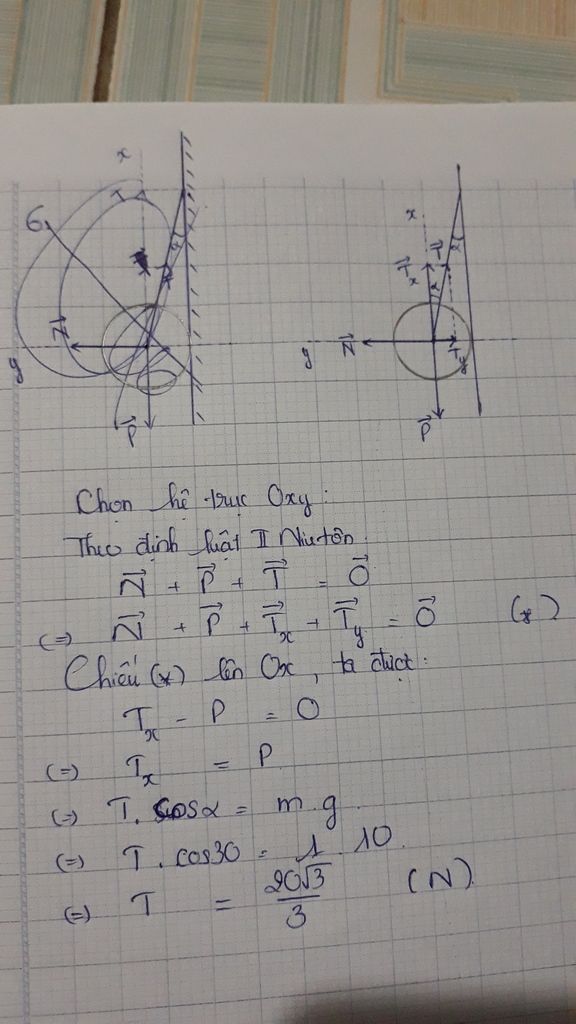 x
G
N⃗
y
P⃗
x
T⃗x
T⃗
α
α
y
N⃗
T⃗y
P⃗
Chọn hệ trục Oxy:
Theo định luật II Niutơn:
N⃗ + P⃗ + T⃗ = 0⃗
(=) N⃗ + P⃗ + T⃗x + T⃗y = 0⃗ (*)
Chiếu (*) lên Ox, ta được:
Tx - P = 0
(=) Tx = P
(=) T. cosα = m.g
(=) T. cos30 = 1.10
(=) T = 20√3/3 (N)